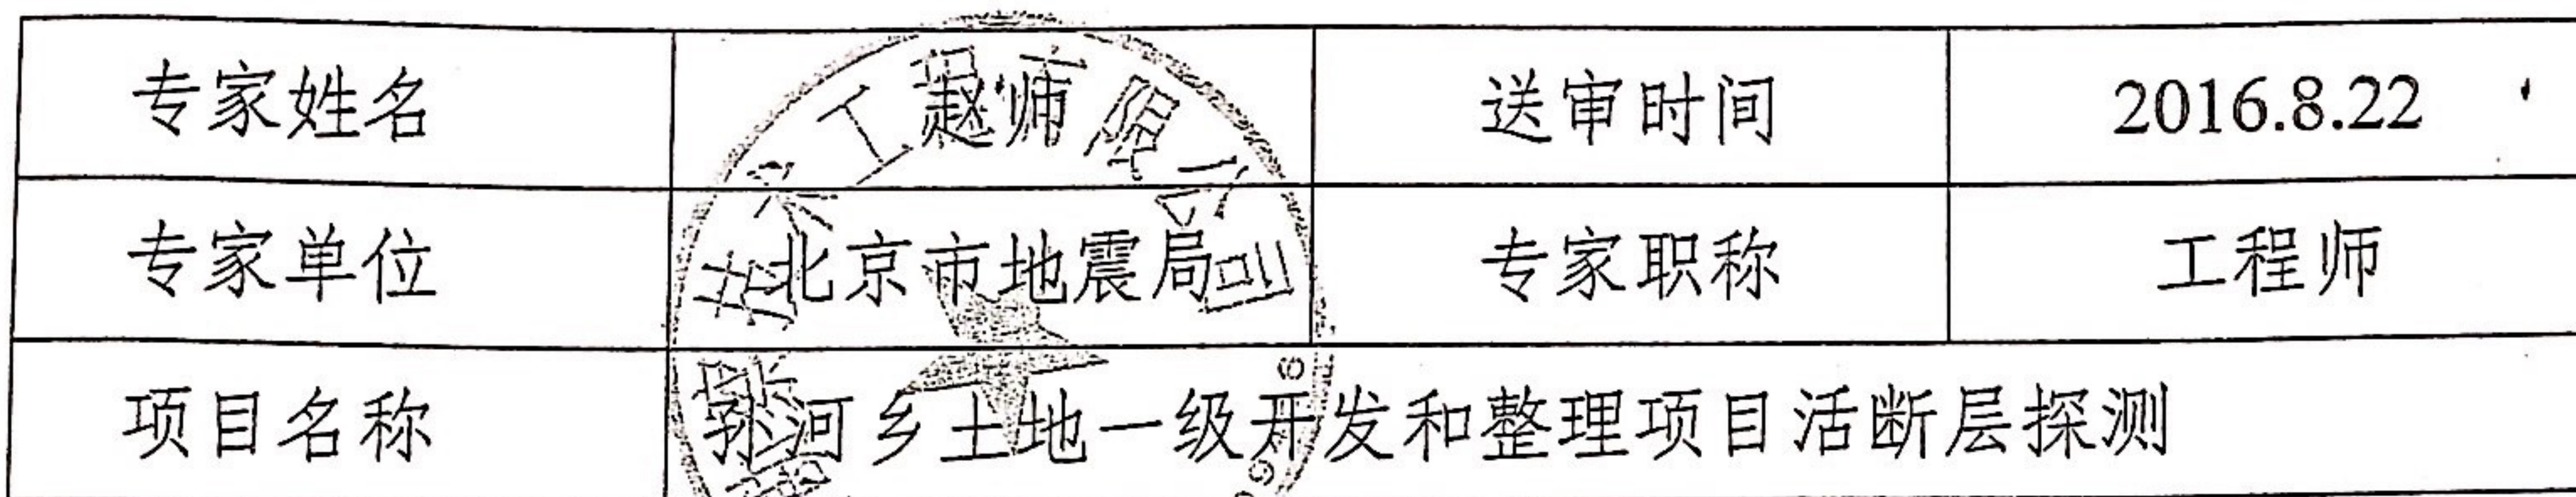 专家姓名 赵帅 送审时间 2016.8.22
专家单位 北京市地震局 专家职称 工程师
项目名称 孙河乡土地一级开发和整理项目活断层探测